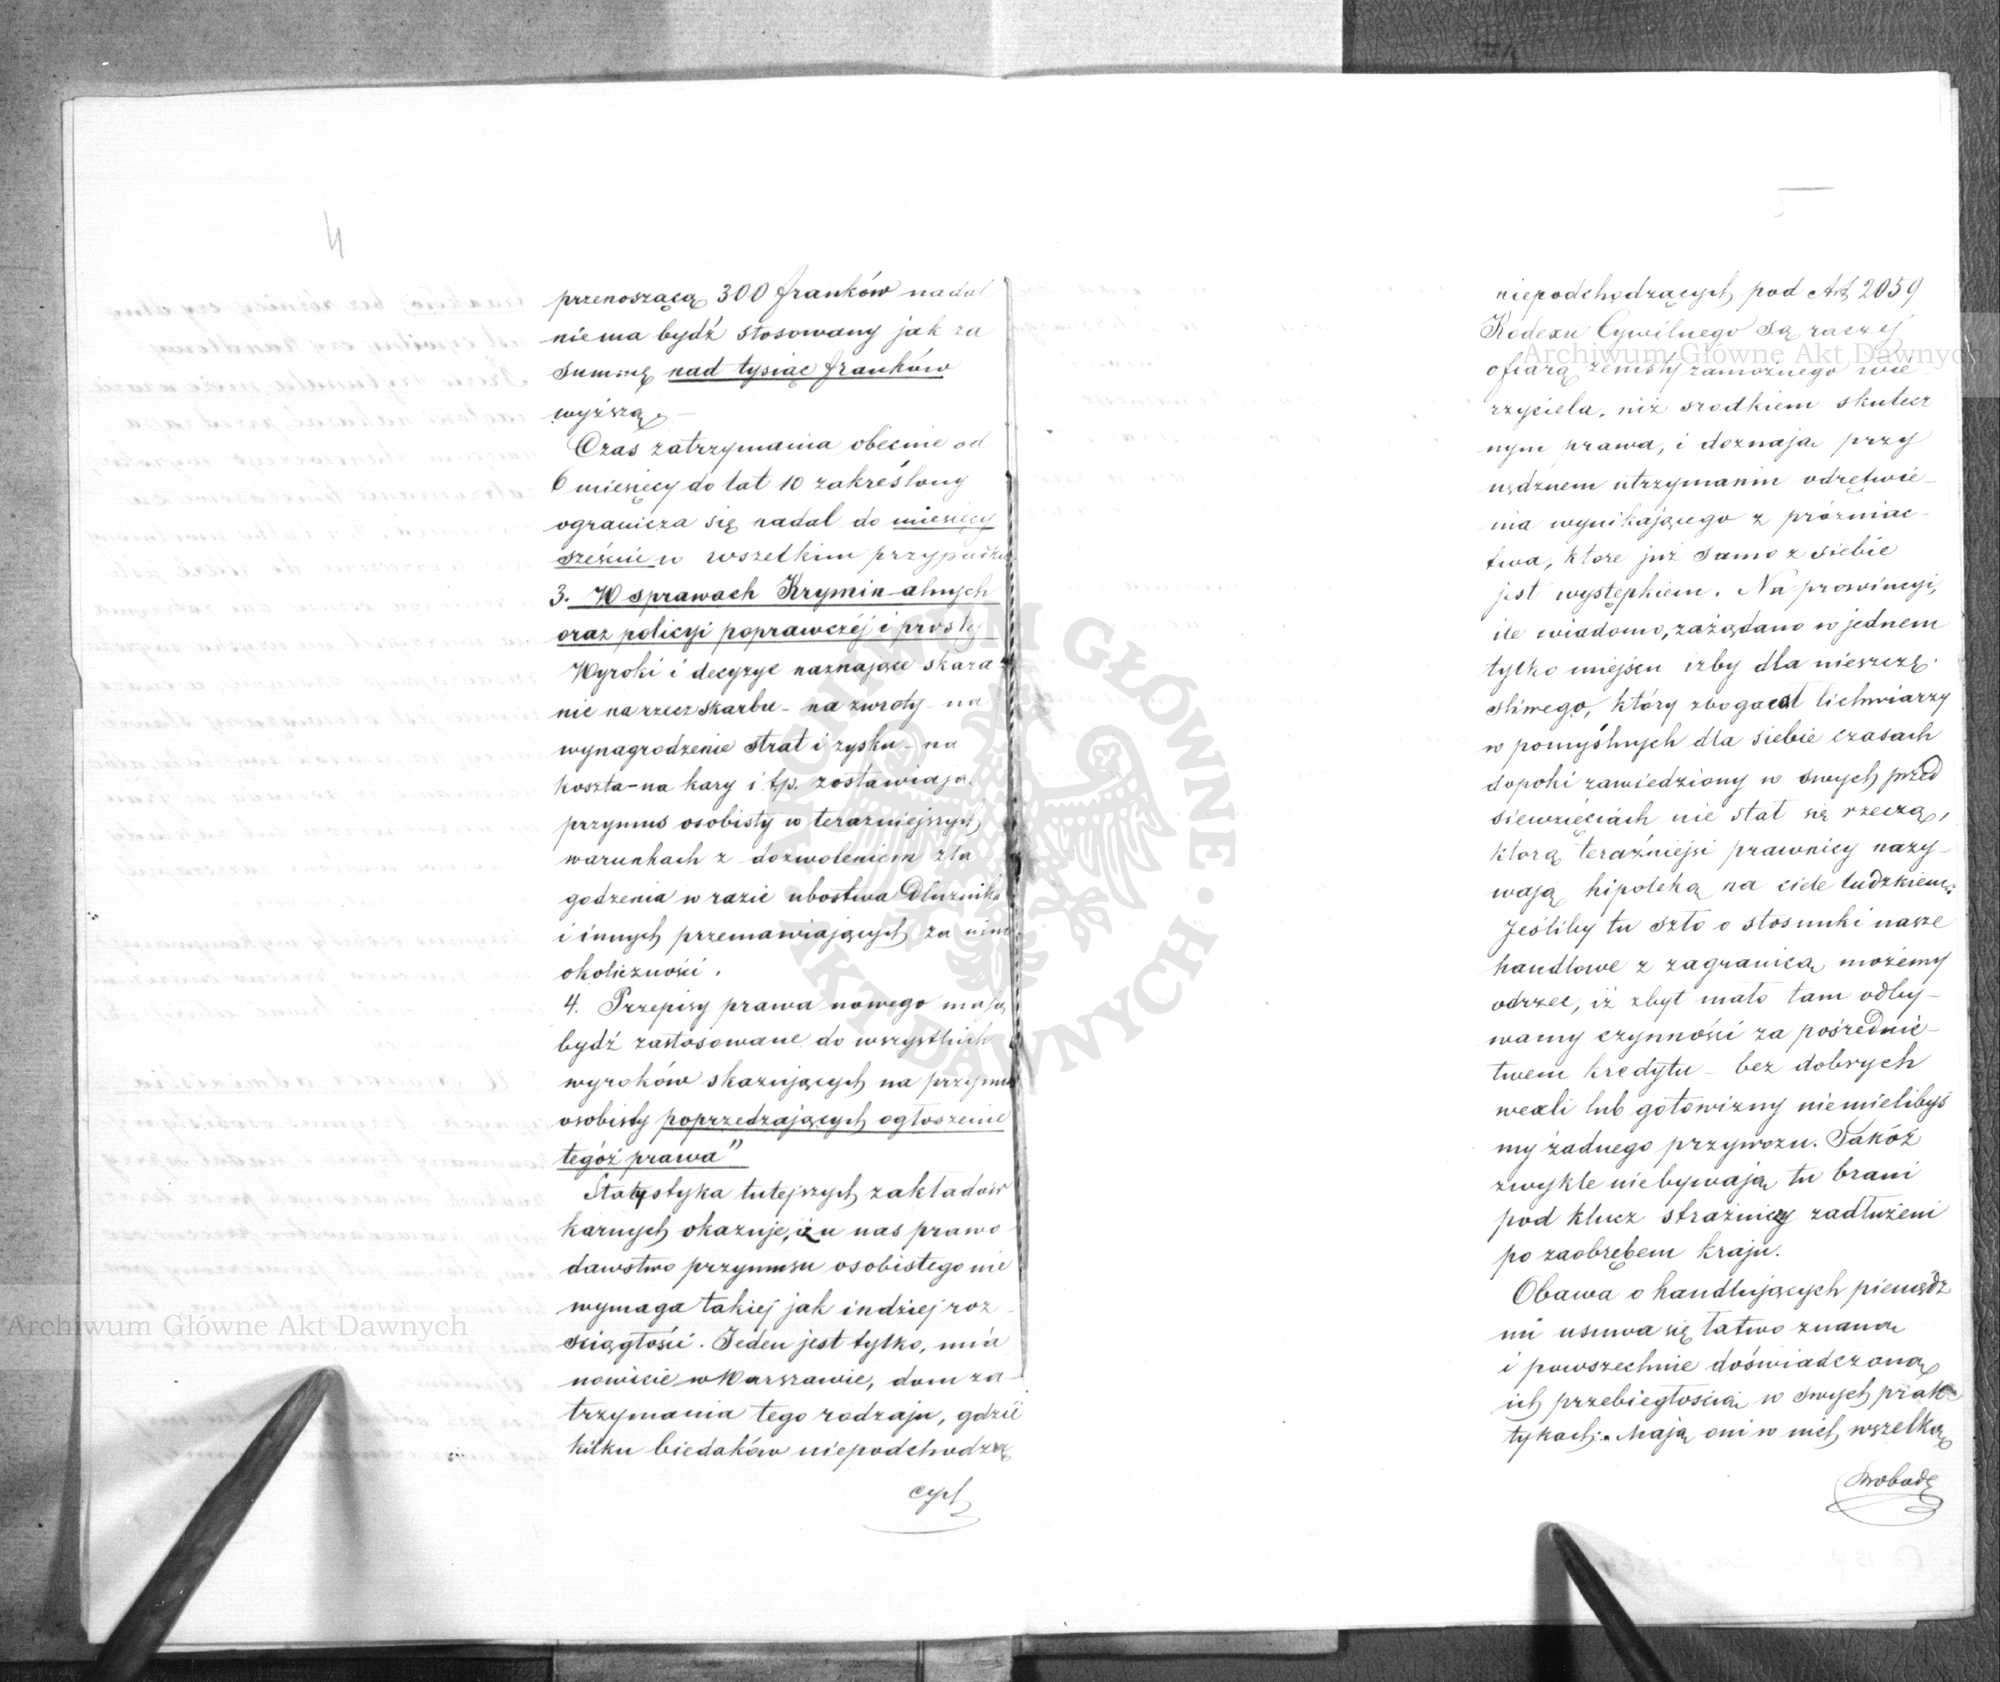 4
przenoszącą 300 franków nadal
niema bydź stosowany jak za
summę nad tysiąc franków
wyższą. —
Czas zatrzymania obecnie od
6 miesięcy do lat 10 zakreślony
ogranicza się nadal do miesięcy
sześciu w wszelkim przypadku
3. W sprawach Kryminalnych
oraz policyi poprawczéj i prostéj
Wyroki i decyzye naznające skaza
nie na rzecz skarbu – na zwroty – na
wynagrodzenie strat i zysku – na
koszta – na kary i t.p. zostawiają
przymus osobisty w teraźniejszych
warunkach z dozwoleniem zła
godzenia w razie ubóstwa Dłużnika
i innych przemawiających za nim
okoliczności.
4. Przepisy prawa nowego mają
bydź zastosowane do wszystkich
wyroków skazujących na przymus
osobisty poprzedzających ogłoszenie
tegóż prawa"
Statystyka tutejszych zakładów
karnych okazuje, iż u nas prawo
dawstwo przymusu osobistego nie
wymaga takiej jak indziej roz-
ciągłości. Jeden jest tylko, mia
nowicie w Warszawie, dom za-
trzymania tego rodzaju, gdzie
kilku biedaków niepodchodzą
cych
niepodchodzących pod Art. 2059
Kodexu Cywilnego są raczej
ofiarą zemsty zamożnego wie
rzyciela, niż srodkiem skutecz
nym prawa, i doznają przy
nędznem utrzymaniu odrętwie-
nia wynikającego z próżniac-
twa, które już samo z siebie
jest występkiem. Na prowincyi,
ile wiadomo, zażądano w jednem
tylko miejscu izby dla nieszczę-
śliwego, który zbogacał lichwiarzy
w pomyślnych dla siebie czasach
dopóki zawiedziony w swych przed
siewzięciach nie stał się rzeczą,
którą teraźniejsi prawnicy nazy-
wają hipoteką na ciele ludzkiem.
Jeśliby tu szło o stosunki nasze
handlowe z zagranicą możemy
odrzec, iż zbyt mało tam odby-
wamy czynności za pośrednic-
twem kredytu – bez dobrych
wexli lub gotowizny niemielibyś
my żadnego przywozu. Jakóż
zwykle niebywają tu brani
pod klucz strażnicy zadłużeni
po zaobrębem kraju.
Obawa o handlujących pieniędz
mi usuwa się łatwo znaną
i powszechnie doświadczoną
ich przebiegłością w swych prak
tykach. Mają oni w nich wszelką
swobodę
Archiwum Główne Akt Dawnych
Archiwum Główne Akt Dawnych
ARCHIWUM GŁÓWNE · AKT DAWNYCH ·